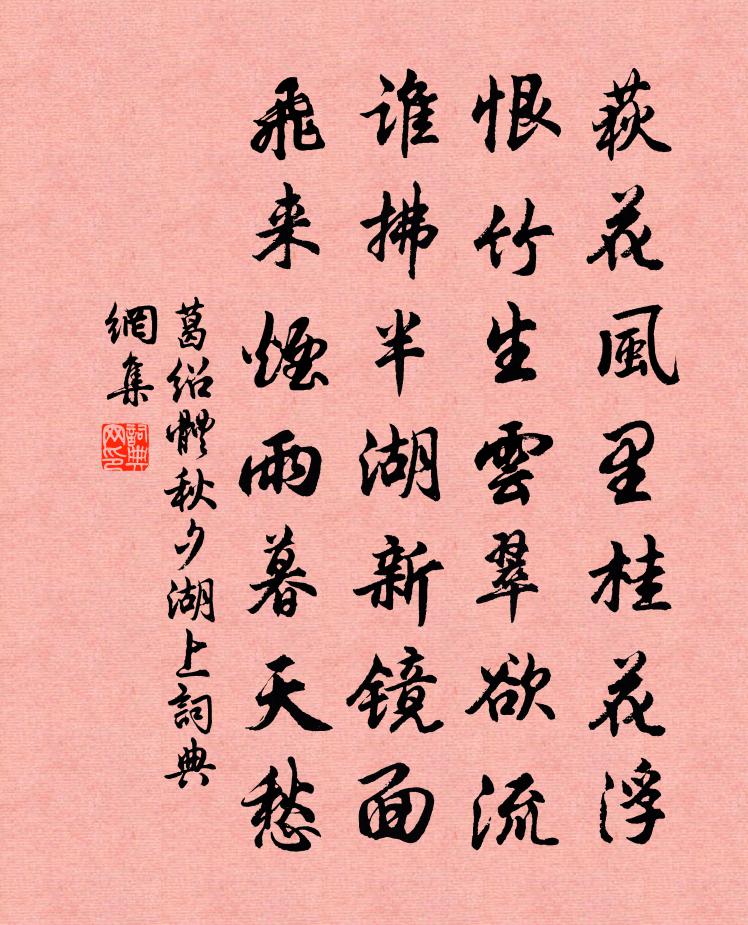 荻花風里桂花浮
恨竹生雲翠欲流
谁拂半湖新镜面
飛来煙雨暮天愁
葛绍體秋夕湖上詞典
網集
詞典
网印